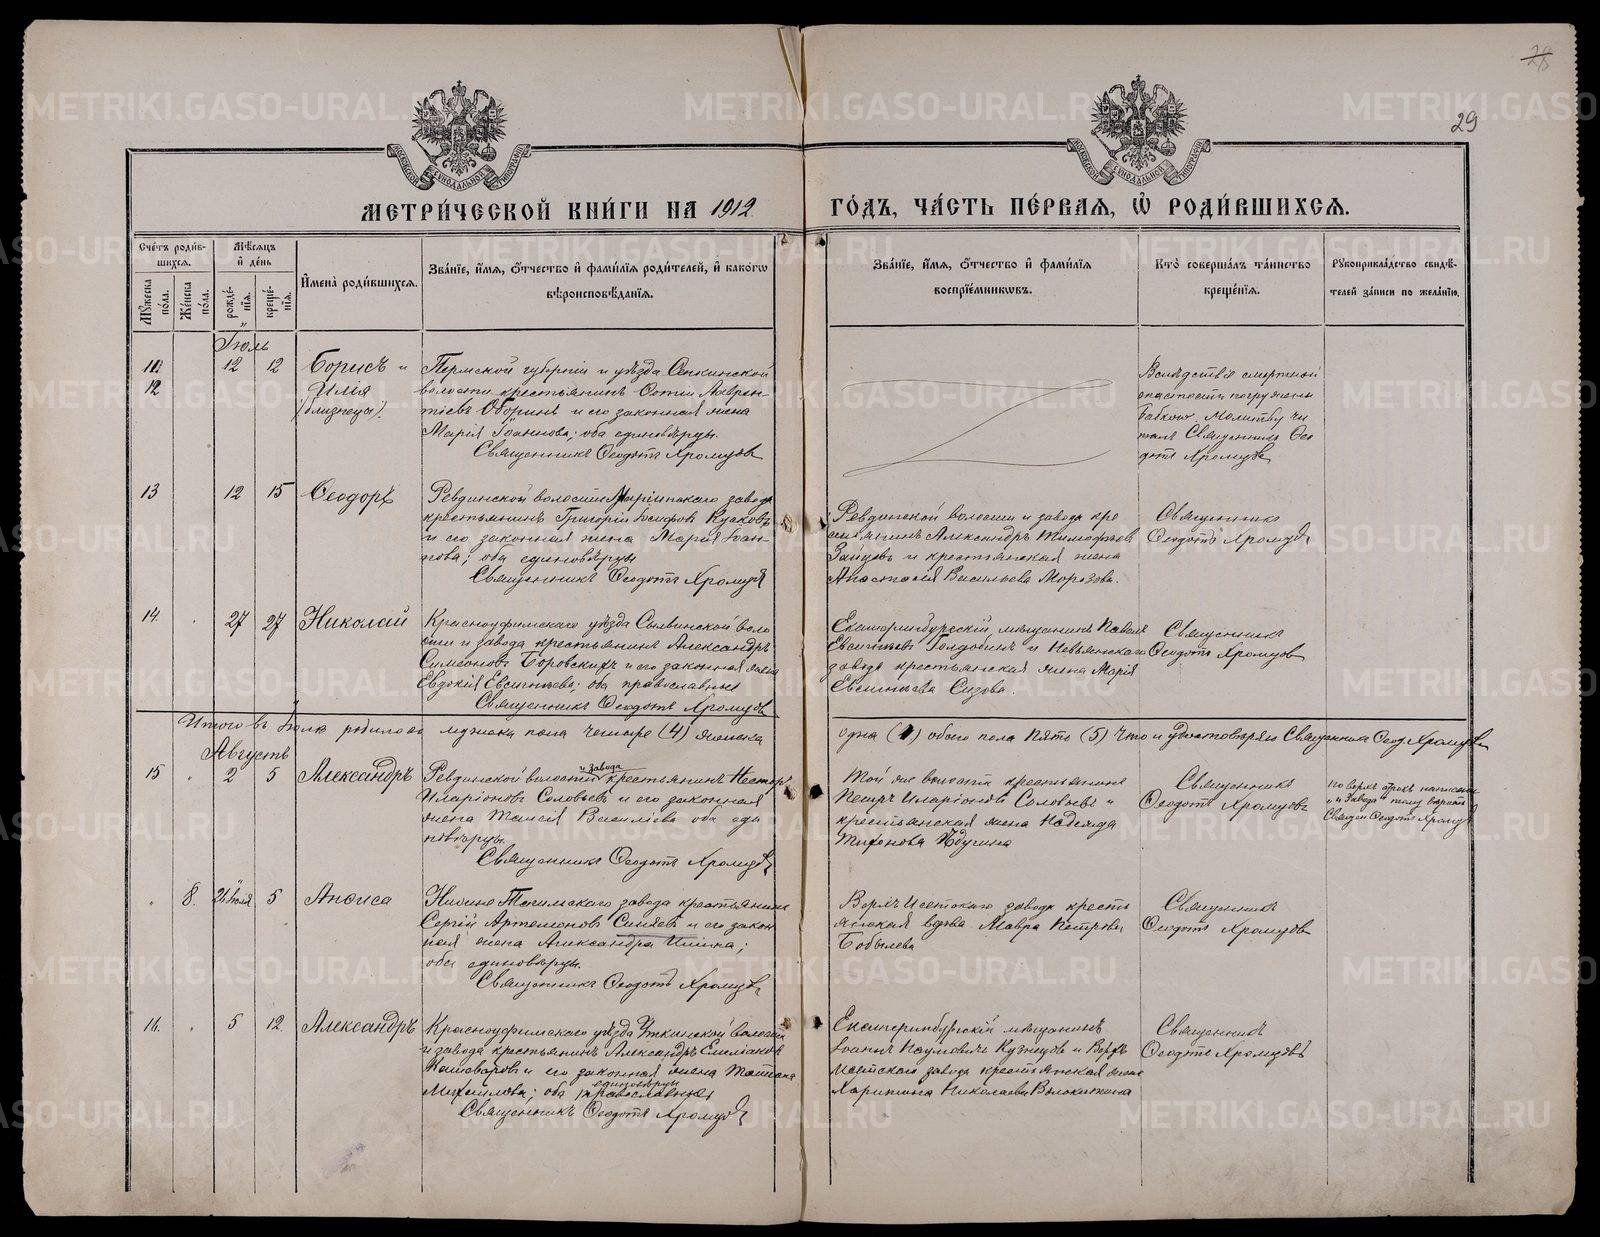 28
29
МОСКОВСКОЙ СѴНОДАЛЬНОЙ ТИПОГРАФІИ
МОСКОВСКОЙ СѴНОДАЛЬНОЙ ТИПОГРАФІИ
МЕТРИ́ЧЕСКОЙ КНИ́ГИ НА 1912 ГО́ДЪ, ЧА́СТЬ ПЕ́РВАЯ, Ѡ҆ РОДИ́ВШИХСѦ.
Сче́тъ роди́в-
шихсѧ.
Мꙋ́жеска
по́ла.
Же́нска
по́ла.
Мѣ́сѧцъ
и҆ де́нь
рожде́-
нїѧ.
креще́-
нїѧ.
И҆мена̀ роди́вшихсѧ.
Зва́нїе, и҆́мѧ, ѻ҆́тчество и҆ фами́лїѧ роди́телей, и҆ како́гѡ
вѣроисповѣ́данїѧ.
Зва́нїе, и҆́мѧ, ѻ҆́тчество и҆ фами́лїѧ
воспрїе́мникѡвъ.
Кто̀ соверша́лъ та́инство
креще́нїѧ.
Рꙋкоприкла́дство свидѣ́-
телей за́писи по жела́нїю.
Іюль
11 12 12 Борисъ и
12 Илія
(близнецы).
Пермской губерніи и уѣзда Сенкинской
волости крестьянинъ Фотій Лаврен-
тіевъ Оборинъ и его законная жена
Марія Іоаннова; оба единовѣрцы.
Священникъ Ѳеодотъ Хромцовъ
Вслѣдствіе смертной
опасности погружены
бабкою. Молитву чи
талъ Священникъ Ѳео
дотъ Хромцовъ
13 12 15 Ѳеодоръ
Ревдинской волости Маріинскаго завода
крестьянинъ Григорій Іосифовъ Кусковъ
и его законная жена Марія Іоан-
нова; оба единовѣрцы
Священникъ Ѳеодотъ Хромцовъ
Ревдинской волости и завода кре
стьянинъ Александръ Тимоѳеевъ
Зайцевъ и крестьянская жена
Анастасія Васильева Морозова.
Священникъ
Ѳеодотъ Хромцовъ
14. 27 27 Николай
Красноуфимскаго уѣзда Сылвинской воло
сти и завода крестьянинъ Александръ
Симеоновъ Боровскихъ и его законная жена
Евдокія Евсигніева; оба православные
Священникъ Ѳеодотъ Хромцовъ
Екатеринбургскій мѣщанинъ Павелъ
Евсигніевъ Голдобинъ и Невьянскаго
завода крестьянская жена Марія
Евсигніева Сизова.
Священникъ
Ѳеодотъ Хромцовъ
Итого въ Іюлѣ родилось мужеска пола четыре (4) женска
одна (1) обоего пола пять (5) Что и удостовѣряю Священникъ Ѳеод. Хромцовъ
Августъ
15 2 5 Александръ
Ревдинской волости и завода крестьянинъ Несторъ
Иларіоновъ Соловьевъ и его законная
жена Таисія Василіева оба еди
новѣрцы.
Священникъ Ѳеодотъ Хромцовъ
Той же волости крестьянинъ
Петръ Иларіоновъ Соловьевъ и
крестьянская жена Надежда
Тихонова
Священникъ
Ѳеодотъ Хромцовъ
"и завода" тому вѣрить
Священ. Ѳеодотъ Хромцовъ
8. Іюля 5 Анфиса
Нижне Тагильскаго завода крестьянинъ
Сергій Артемоновъ Синяевъ и его закон
ная жена Александра Ильина;
оба единовѣрцы.
Священникъ Ѳеодотъ Хромцовъ
Верхъ Исетскаго завода кресть
янская вдова Мавра Петрова
Бобылева
Священникъ
Ѳеодотъ Хромцовъ
16. 5 12. Александръ
Красноуфимскаго уѣзда Уткинской волости
и завода крестьянинъ Александръ Емелиановъ
и его законная жена Татіана
единовѣрцы
Михаилова; оба православныя
Священникъ Ѳеодотъ Хромцовъ
Екатеринбургскій мѣщанинъ
Іоаннъ Наумовичъ Кузнецовъ и Верхъ
Исетскаго завода крестьянская жена
Харитина Николаева Волокитина
Священникъ
Ѳеодотъ Хромцовъ
METRIKI.GASO-URAL.RU